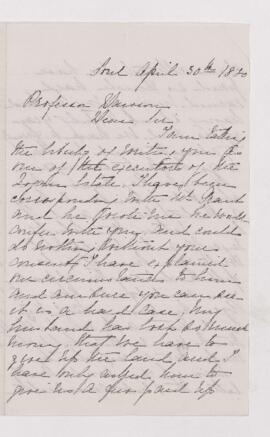 Sorel April 30th 18
Professor Dawson
Dear Sir
I am taking
the liberty of writing you as
one of the executors of the
Estate. I have been
corresponding with Mr
and he wrote me he would
confer with you and could
do nothing without your
consent I have explained
our circumstances to him
and am sure you can see
it is a hard case, my
husband has lost so much
money that we have to
give up the land and I
have only asked him to
give us a few paid up